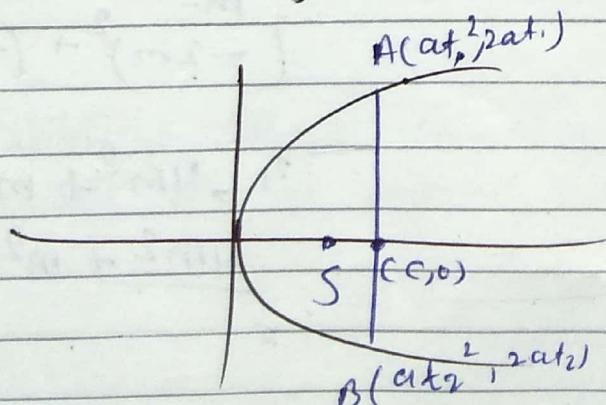 A(at₁², 2at₁)
S
(c,0)
B(at₂², 2at₂)